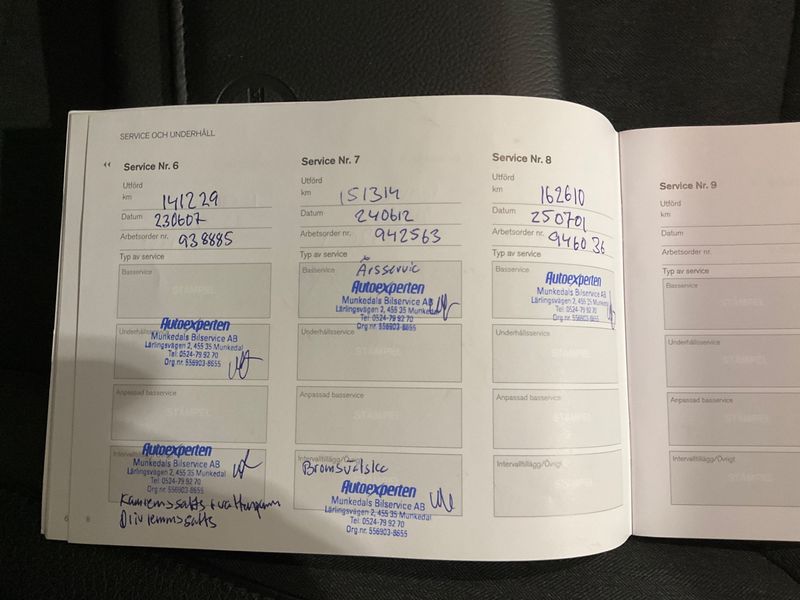 SERVICE OCH UNDERHÅLL
Service Nr. 6
Utförd
km 141229
Datum 230607
Arbetsorder nr. 938885
Typ av service
Basservice
STÄMPEL
Underhållsservice
Autoexperten
Munkedals Bilservice AB
Lärlingsvägen 2, 455 35 Munkedal
Tel: 0524-79 92 70
Org.nr. 556903-8655
Anpassad basservice
STÄMPEL
Intervalltillägg/Övrigt
Autoexperten
Munkedals Bilservice AB
Lärlingsvägen 2, 455 35 Munkedal
Tel: 0524-79 92 70
Org.nr. 556903-8655
Kamremssats + vattenpump
Drivremssats
Service Nr. 7
Utförd
km 151314
Datum 240612
Arbetsorder nr. 942563
Typ av service
Basservice
Årsservic
Autoexperten
Munkedals Bilservice AB
Lärlingsvägen 2, 455 35 Munkedal
Tel: 0524-79 92 70
Org.nr. 556903-8655
Underhållsservice
STÄMPEL
Anpassad basservice
STÄMPEL
Intervalltillägg/Övrigt
Bromsvätska
Autoexperten
Munkedals Bilservice AB
Lärlingsvägen 2, 455 35 Munkedal
Tel: 0524-79 92 70
Org.nr. 556903-8655
Service Nr. 8
Utförd
km 162610
Datum 250701
Arbetsorder nr. 946036
Typ av service
Basservice
Autoexperten
Munkedals Bilservice AB
Lärlingsvägen 2, 455 35 Munkedal
Tel: 0524-79 92 70
Org.nr. 556903-8655
Underhållsservice
STÄMPEL
Anpassad basservice
STÄMPEL
Intervalltillägg/Övrigt
STÄMPEL
Service Nr. 9
Utförd
km
Datum
Arbetsorder nr.
Typ av service
Basservice
STÄMPEL
Underhållsservice
STÄMPEL
Anpassad basservice
STÄMPEL
Intervalltillägg/Övrigt
STÄMPEL
6
8